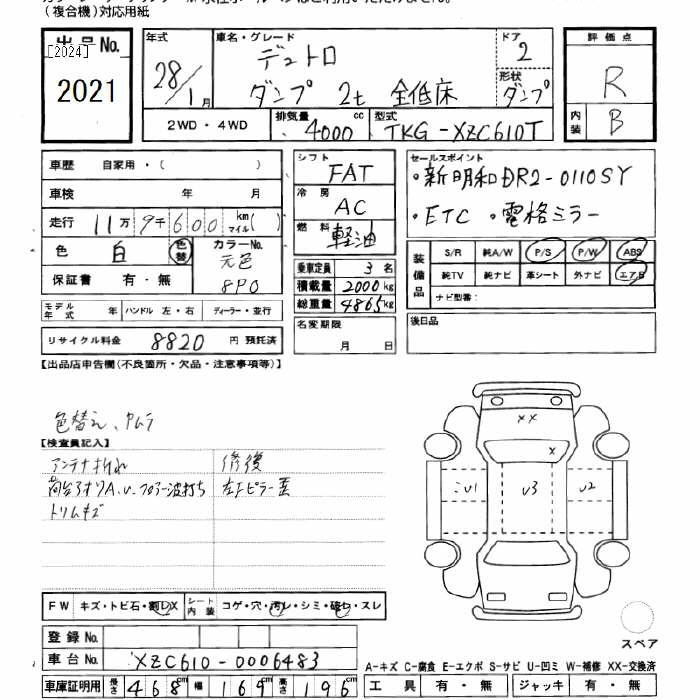 (複合機)対応用紙
出品No.
[2024]
2021
年式
28/1月
車名・グレード
デュトロ
ダンプ 2t 全低床
ドア
2
形状
ダンプ
評価点
R
内装
B
2WD・4WD
排気量
4000 cc
型式
TKG-XZC610T
車歴 自家用・( )
車検 年 月
走行 11万9千600 km マイル( )
色 白 色替
カラーNo.
元色
8P0
保証書 有・無
モデル年式 年
ハンドル 左・右
ディーラー・並行
リサイクル料金 8820 円 預託済
シフト
FAT
冷房
AC
燃料
軽油
乗車定員 3名
積載量 2000kg
総重量 4865kg
名変期限
月 日
セールスポイント
・新明和DR2-0110SY
・ETC ・電格ミラー
装備品
S/R 純A/W P/S P/W ABS
純TV 純ナビ 革シート 外ナビ エアB
ナビ型番:
後日品
【出品店申告欄(不良箇所・欠品・注意事項等)】
色替え、ヤムラ
【検査員記入】
アンテナ折れ
修復
荷台アオリA.U.フロアー波打ち
左Fピラー歪
トリムキズ
XX
X
U1
U3
U2
FW キズ・トビ石・割レX
シート内装 コゲ・穴・汚レ・シミ・破レ・スレ
登録No.
車台No. XZC610-0006483
車庫証明用 長さ 468cm 幅 169cm 高さ 196cm
スペア
A-キズ C-腐食 E-エクボ S-サビ U-凹ミ W-補修 XX-交換済
工具 有・無 ジャッキ 有・無